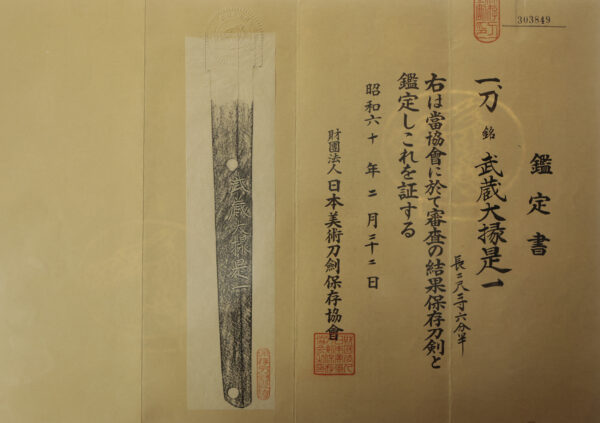 303849
鑑定書
一、刀 銘 武蔵大掾是一
長二尺二寸六分半
右は當協會に於て審査の結果保存刀劍と
鑑定しこれを証する
昭和六十年二月二十二日
財團法人 日本美術刀劍保存協會
武蔵大掾是一